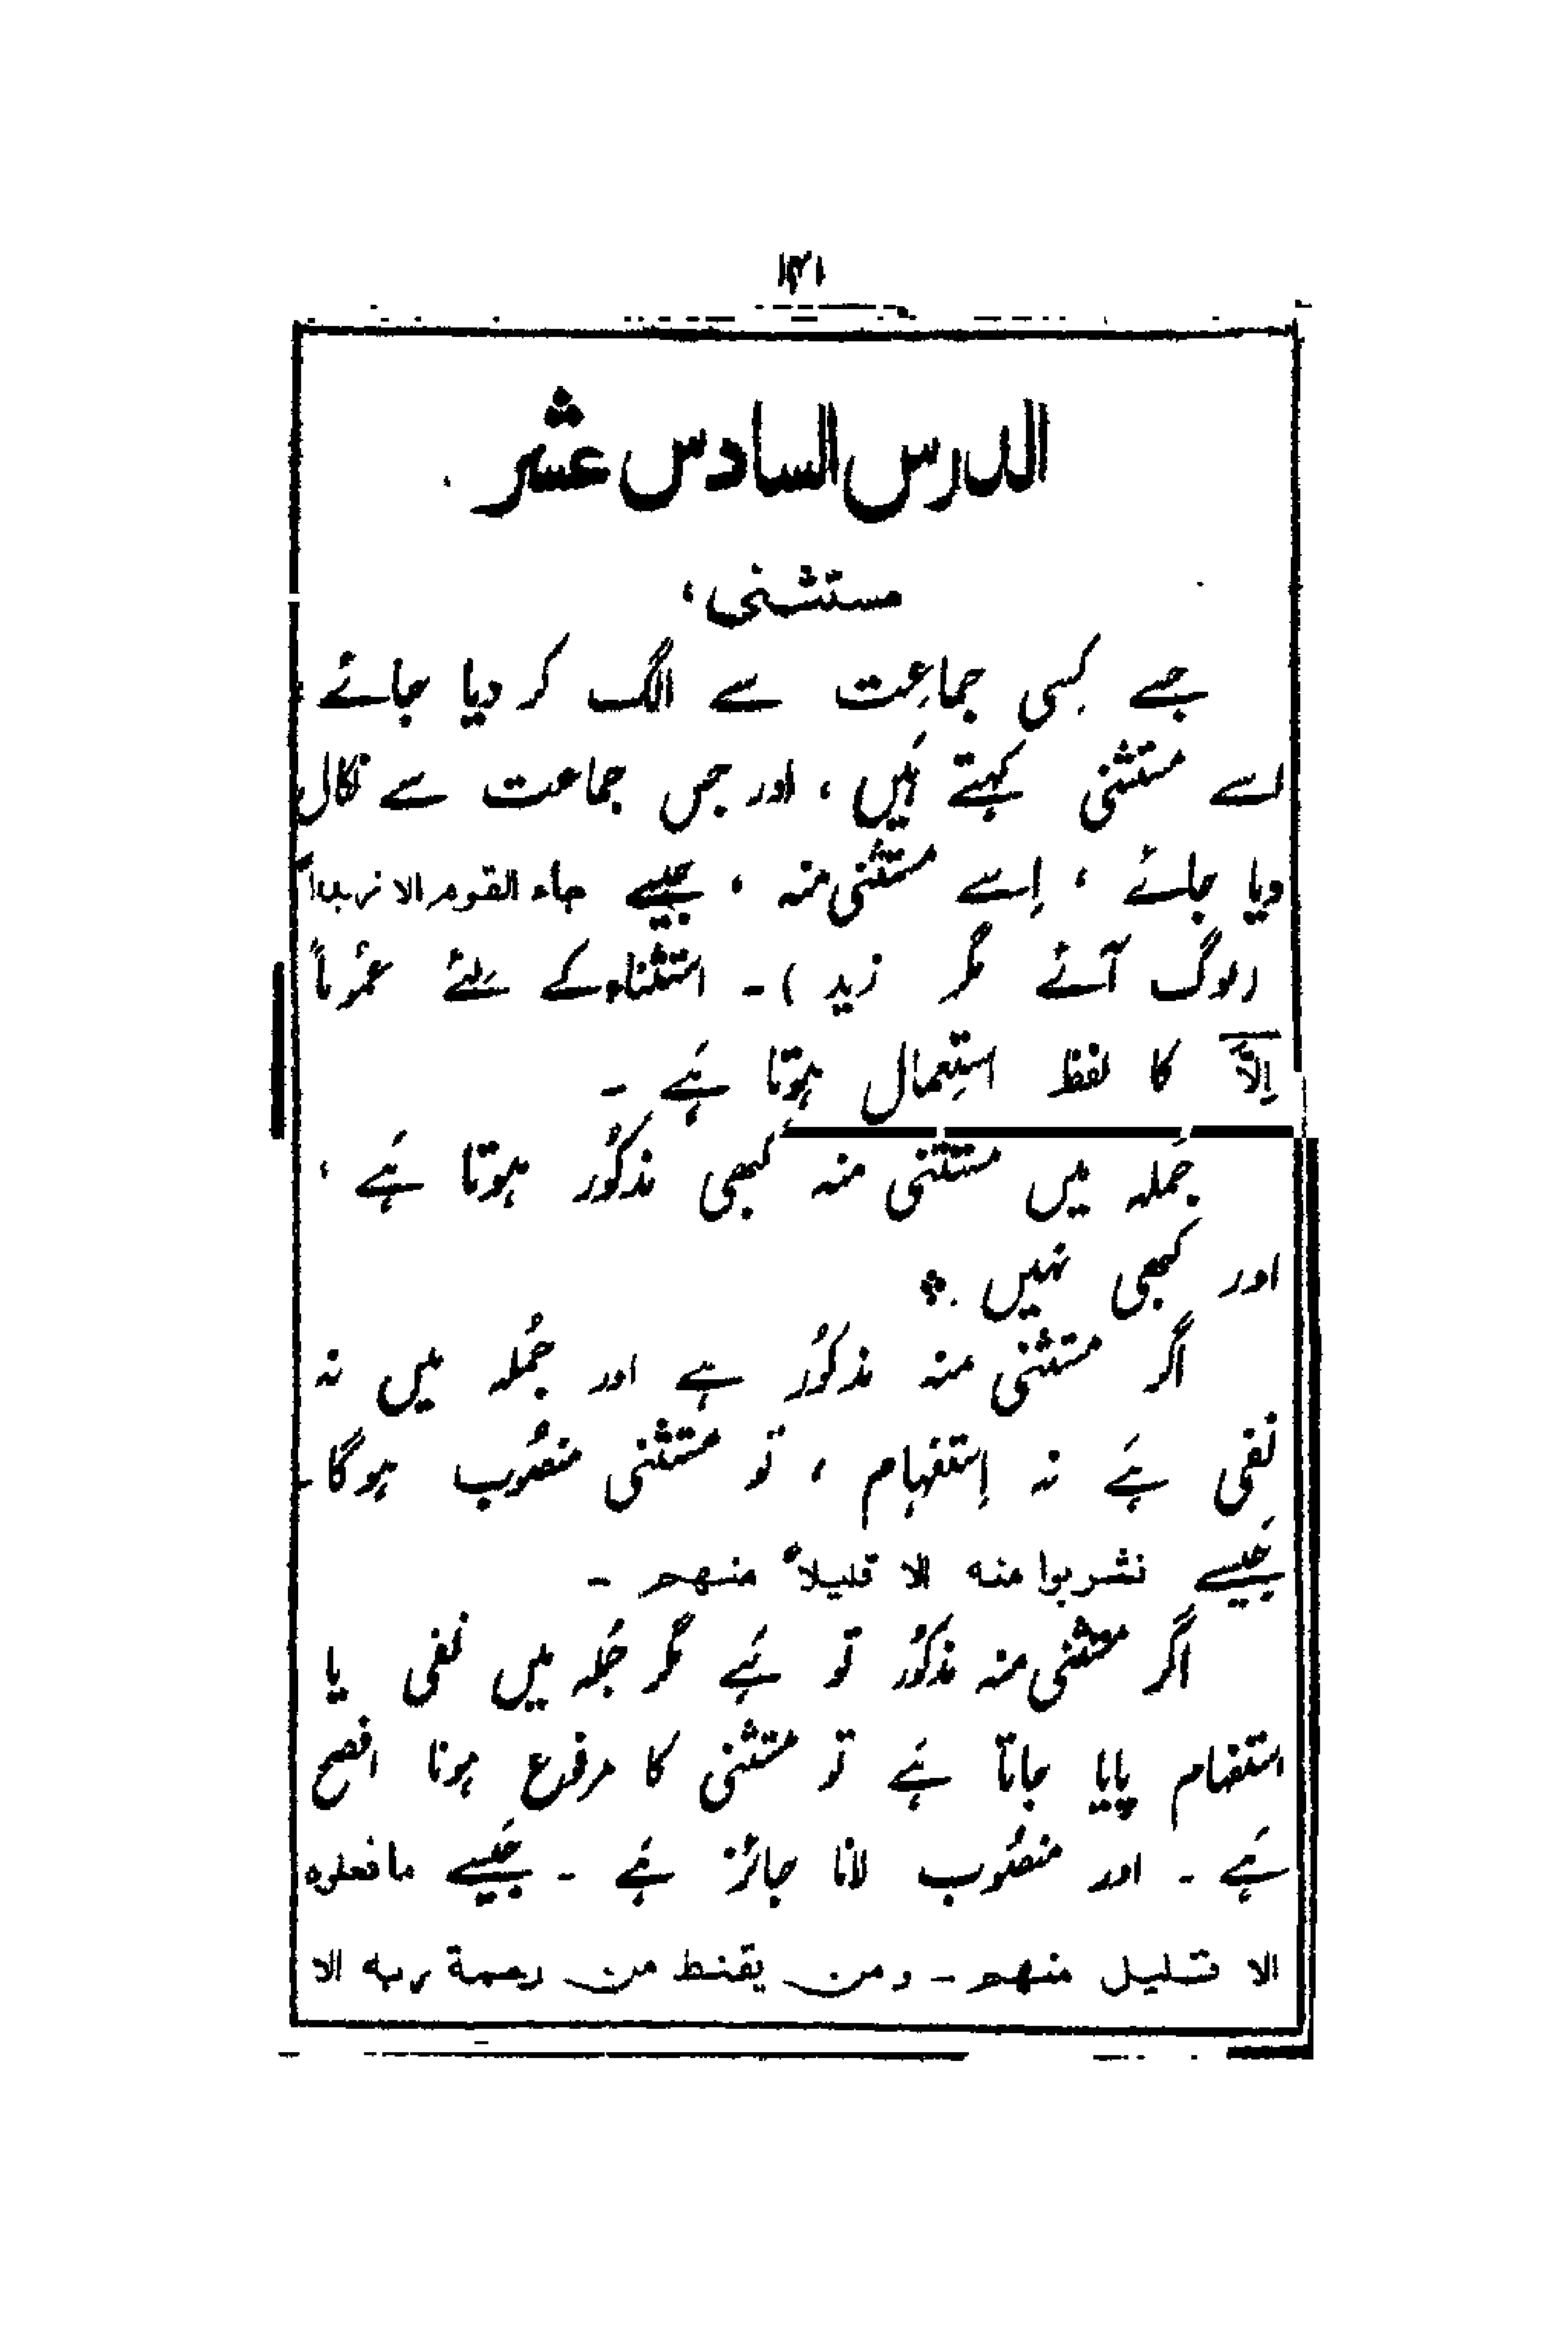 ۱۳۱
الدرس السادس عشر
مستثنی،
جسے کِسی جماعِت سے الگ کر دیا جائے
اسے مستثنی کہتے ہَیں ، اور جس جماعت سے نکال
دیا جائے ، اِسے مستثنی منہ ، جیسے جاء القوم الا زیداً
(لوگ آئے مگر زید ) ۔ استثناء کے لئے عمُوماً
اِلاَّ کا لفظ استِعمال ہوتا ہَے ۔
جُملہ میں مستثنی منہ کبھی مذکُور ہوتا ہَے ،
اور کبھی نہیں ۔
اگر مستثنی منہ مذکوُر ہے اور جُملہ میں نہ
نفی ہَے نہ اِستفہام ، تو مستثنی منصُوب ہوگا ۔
جَیسے فشربوا منہ الا قلیلاً منہم ۔
اگر مستثنی منہ مذکوُر تو ہَے مگر جُملہ میں نفی یا
استفہام پایا جاتا ہَے تو مستثنی کا مرفوع ہونا افصح
ہَے ۔ اور منصُوب لانا جائز ہَے ۔ جَیسے مافعلوہ
الا قلیل منہم ۔ ومن یقنط من رحمة ربہ الا